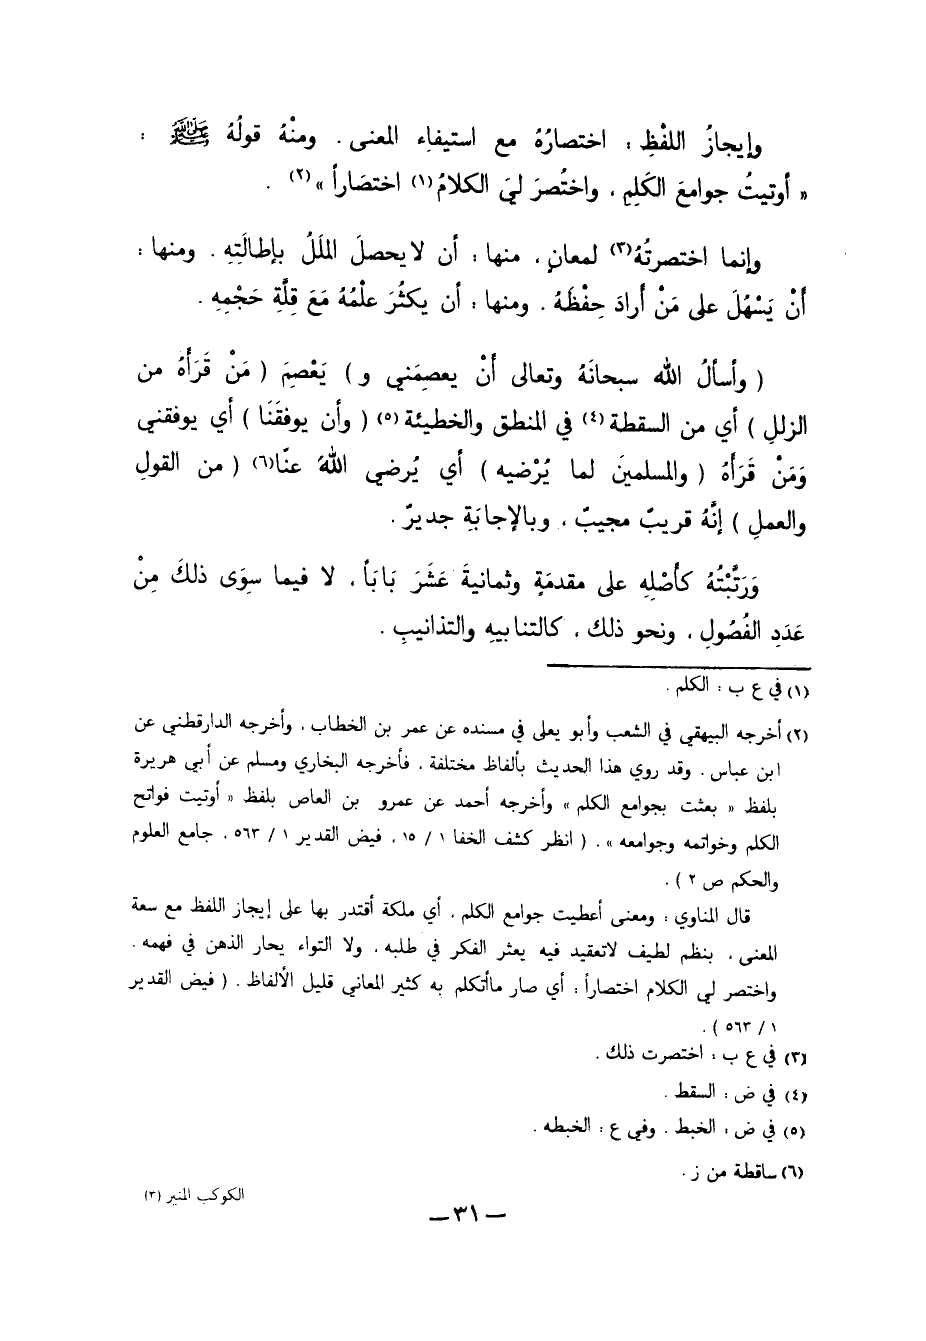 وإيجازُ اللفْظِ : اختصارُهُ مع استيفاءِ المعنى . ومنْهُ قولُهُ ﷺ :
« أوتيتُ جوامعَ الكَلِمِ ، واختُصرَ ليَ الكلامُ(١) اختصَاراً »(٢) .
وإنما اختصرتُهُ(٣) لمعانٍ ، منها : أن لا يحصلَ الملَلُ بإطالَتِهِ . ومنها :
أنْ يَسْهُلَ على مَنْ أرادَ حِفْظَهُ . ومنها : أن يكثُرَ علْمُهُ مَعَ قلَّةِ حَجْمِهِ .
( وأسألُ الله سبحانَهُ وتعالى أنْ يعصِمَني و ) يَعْصِمَ ( مَنْ قَرَأهُ من
الزللِ ) أي من السقطة(٤) في المنطق والخطيئة(٥) ( وأن يوفقَنَا ) أي يوفقني
وَمَنْ قَرَأهُ ( والمسلمينَ لما يُرْضيه ) أي يُرضي اللّهَ عنّا(٦) ( من القولِ
والعملِ ) إنَّهُ قريبٌ مجيبٌ ، وبالإجابَةِ جديرٌ .
وَرَتَّبْتُهُ كأصْلِهِ على مقدمَةٍ وثمانيةَ عَشَرَ بَابَاً ، لا فيما سِوَى ذلكَ مِنْ
عَدَدِ الفُصُولِ ، ونحو ذلك ، كالتنابيهِ والتذانيبِ .
(١) في ع ب : الكلم .
(٢) أخرجه البيهقي في الشعب وأبو يعلى في مسنده عن عمر بن الخطاب ، وأخرجه الدارقطني عن
ابن عباس . وقد روي هذا الحديث بألفاظ مختلفة ، فأخرجه البخاري ومسلم عن أبي هريرة
بلفظ « بعثت بجوامع الكلم » وأخرجه أحمد عن عمرو بن العاص بلفظ « أوتيت فواتح
الكلم وخواتمه وجوامعه » . ( انظر كشف الخفا ١ / ١٥ ، فيض القدير ١ / ٥٦٣ ، جامع العلوم
والحكم ص ٢ ) .
قال المناوي : ومعنى أعطيت جوامع الكلم ، أي ملكة أقتدر بها على إيجاز اللفظ مع سعة
المعنى ، بنظم لطيف لاتعقيد فيه يعثر الفكر في طلبه ، ولا التواء يحار الذهن في فهمه .
واختصر لي الكلام اختصاراً : أي صار ماأتكلم به كثير المعاني قليل الألفاظ . ( فيض القدير
١ / ٥٦٣ ) .
(٣) في ع ب : اختصرت ذلك .
(٤) في ض : السقط .
(٥) في ض : الخبط . وفي ع : الخبطه .
(٦) ساقطة من ز .
الكوكب المنير (٣)
— ٣١ —